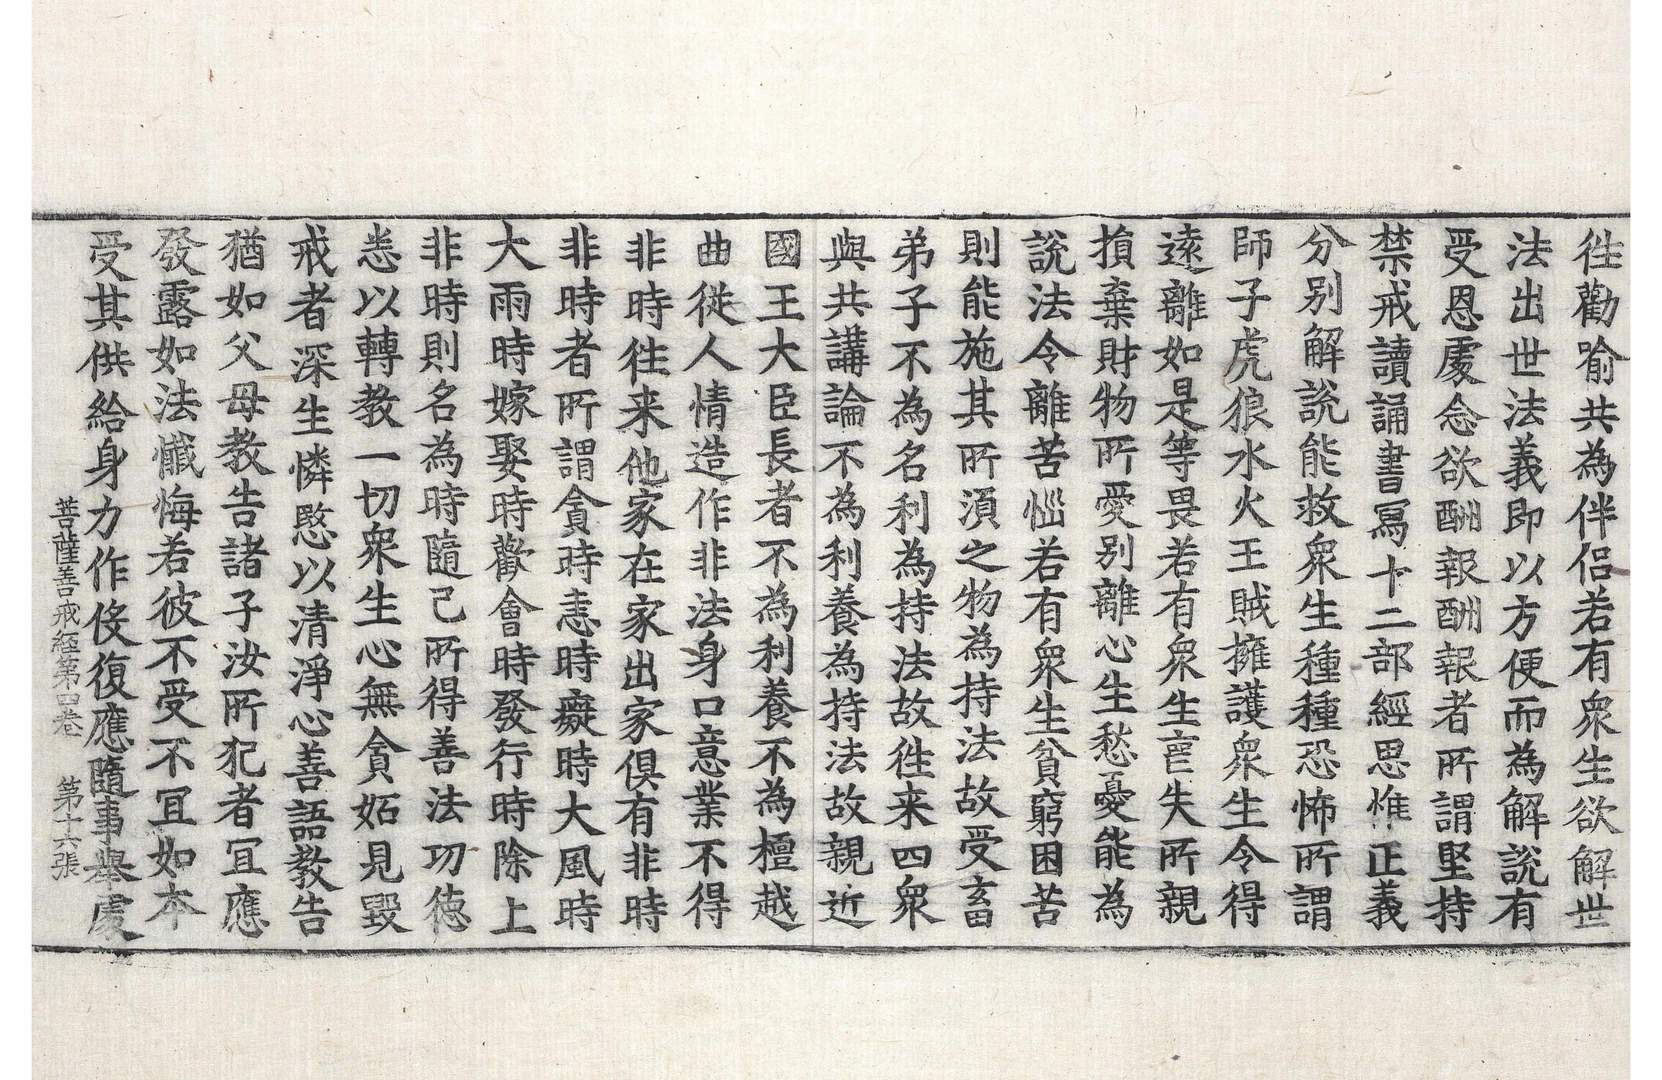 徃勸喻共為伴侣若有衆生欲解世
法出世法義即以方便而為解說有
受恩處念欲酬報酬報者所謂堅持
禁戒讀誦書寫十二部經思惟正義
分別解說能救衆生種種恐怖所謂
師子虎狼水火王賊擁護衆生令得
遠離如是等畏若有衆生䘮失所親
損棄財物所愛別離心生愁憂能為
說法令離苦惱若有衆生貧窮困苦
則能施其所湏之物為持法故受畜
弟子不為名利為持法故徃来四衆
與共講論不為利養為持法故親近
國王大臣長者不為利養不為檀越
曲從人情造作非法身口意業不得
非時徃来他家在家出家俱有非時
非時者所謂貪時恚時癡時大風時
大雨時嫁娶時歡會時發行時除上
非時則名為時隨己所得善法功徳
悉以轉教一切衆生心無貪妬見毀
戒者深生憐愍以清淨心善語教告
猶如父母教告諸子汝所犯者冝應
發露如法懺悔若彼不受不冝如本
受其供給身力作役復應隨事舉處
菩薩善戒経第四卷　第十六張